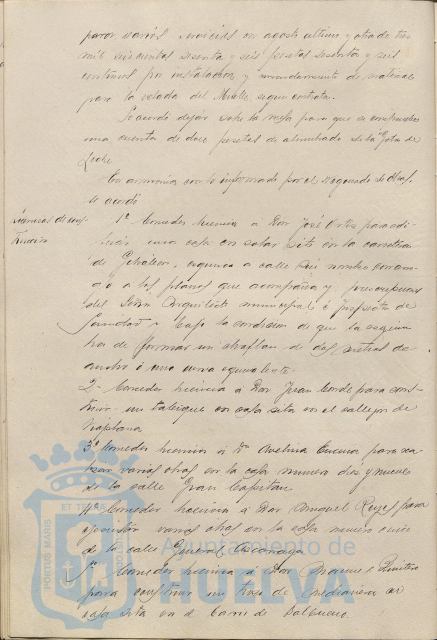 para varios servicios en agosto ultimo y otra de tres
mil seiscientas sesenta y seis pesetas sesenta y seis
centimos por instalacion y arrendamiento de material
para la velada del Muelle segun contrato.
Se acordó dejar sobre la mesa para que se
una cuenta de doce pesetas de alumbrado de la Gota de
Leche.
En armonia con lo informado por el Negociado de Obras,
se acordó
Licencias de cons-
truccion
1º Conceder licencia a Don José Ortiz para edi-
ficar una casa en solar sito en la carretera
de Gibraleon, esquina a calle sin nombre con arre-
glo a los planos que acompaña y
del Señor Arquitecto municipal é Inspector de
Sanidad y bajo la condicion de que la esquina
ha de formar un chaflan de dos metros de
ancho ó una curva equivalente.
2º Conceder licencia a Don Juan Conde para cons-
truir un tabique en casa sita en el callejon de
3º Conceder licencia á Dª Avelina para rea-
lizar varias obras en la casa numero diez y nueve
de la calle Gran Capitan
4º Conceder licencia á Don Manuel Reyes para
ejecutar varias obras en la casa numero once
de la calle General Azcarraga
5º Conceder licencia á Don Manuel Quintero
para construir un trozo de medianera en
casa sita en el Barrio de Balbuena.
ET TERRAE
PORTUS MARIS
Ayuntamiento de
HUELVA